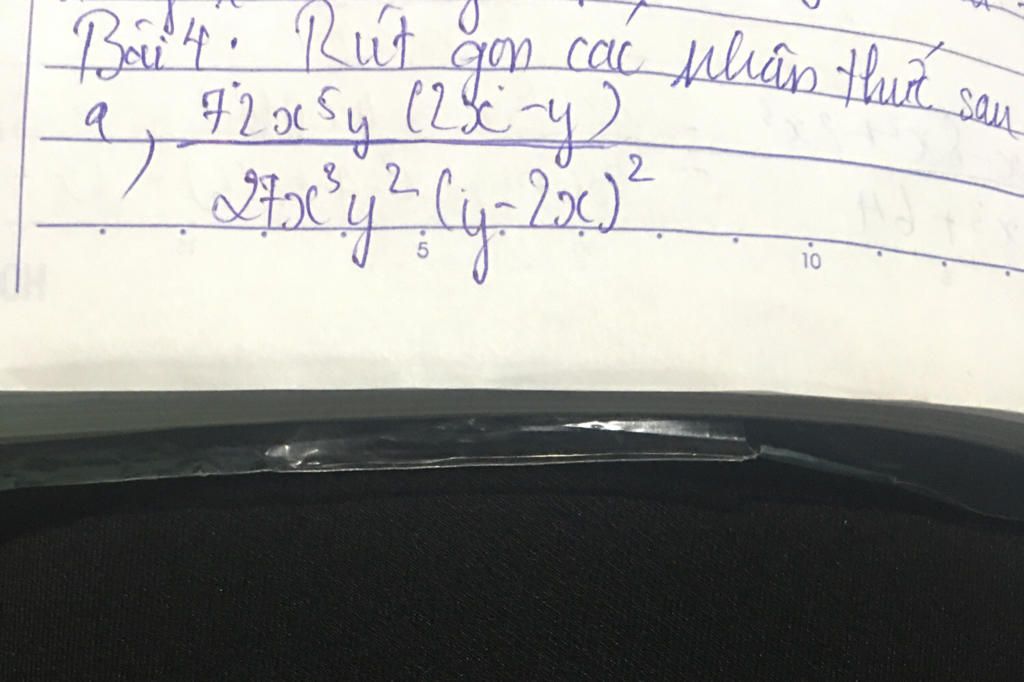 Bài 4. Rút gọn các nhân thức sau
a, 72x⁵y (2x-y)
27x³y² (y-2x)²
5 10